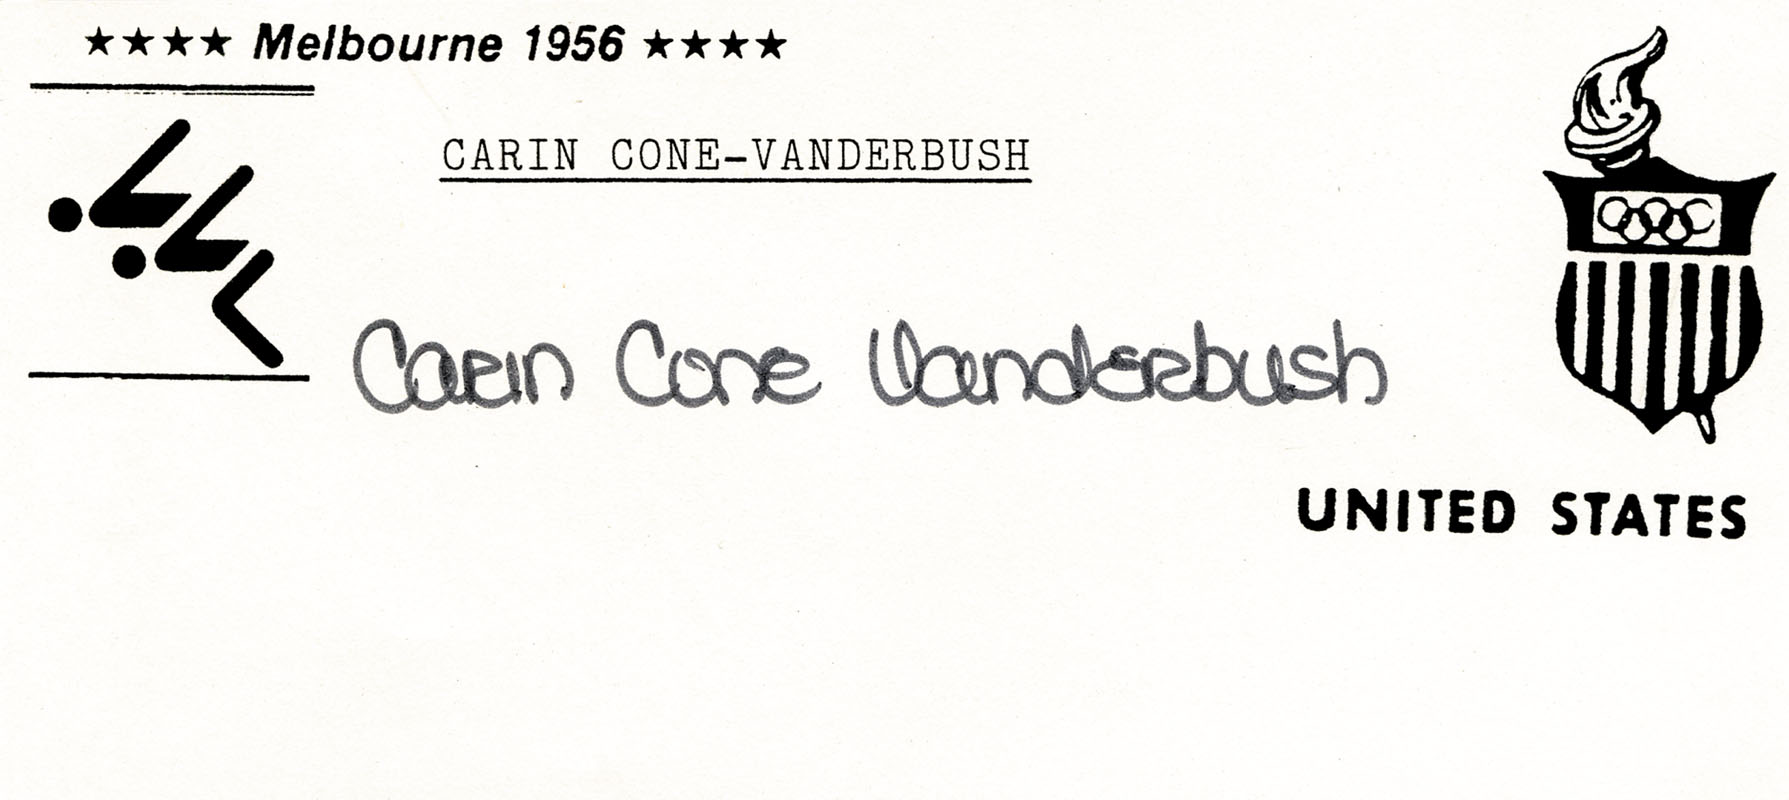 ★★★★ Melbourne 1956 ★★★★
CARIN CONE-VANDERBUSH
Carin Cone Vanderbush
UNITED STATES